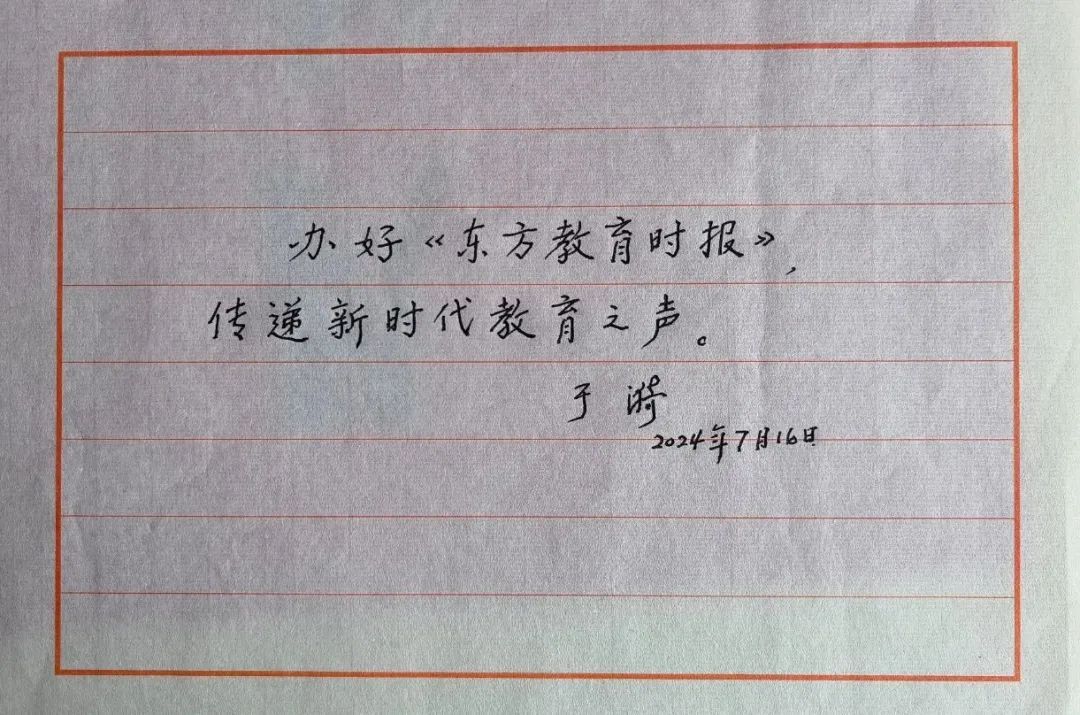 办好《东方教育时报》,
传递新时代教育之声。
于漪
2024年7月16日